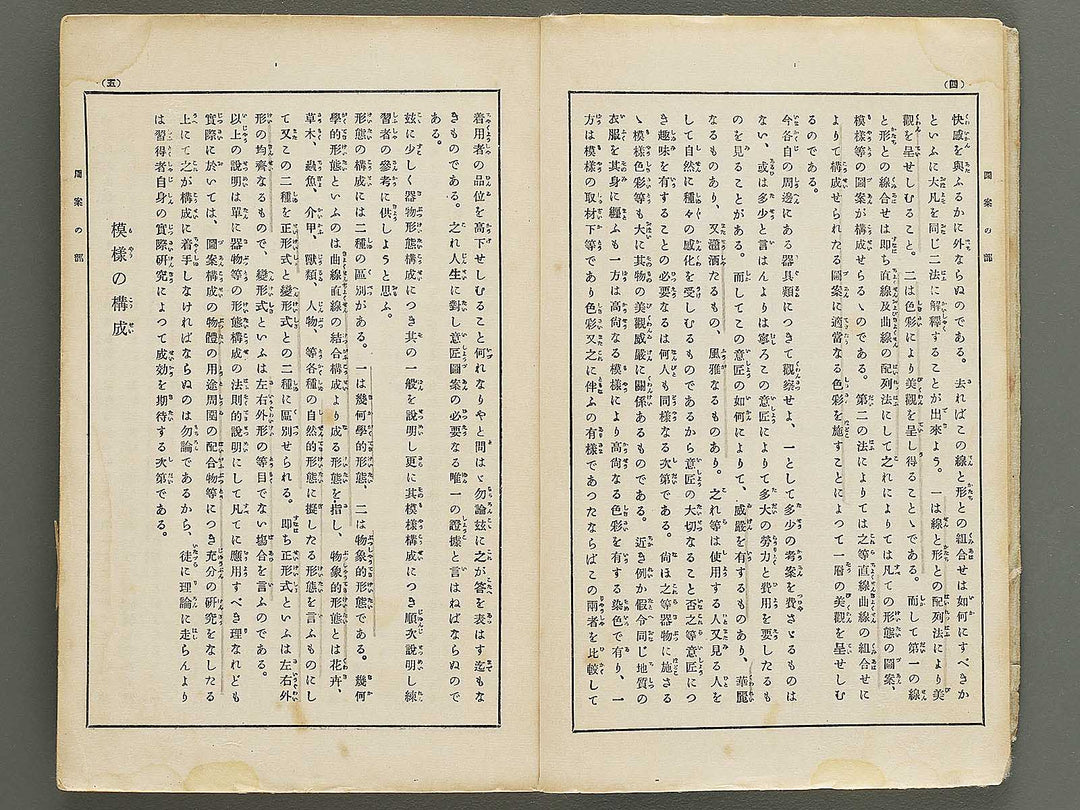 (四)
圖案の部
快感を與ふるかに外ならぬのである。去ればこの線と形との組合せは如何にすべきか
といふに大凡を同じ二法に解釋することが出來よう。一は線と形との配列法により美
觀を呈せしむること。二は色彩により美觀を呈し得ることゝである。而して第一の線
と形との綜合せは即ち直線及曲線の配列法にして之れによりては凡ての形態の圖案、
模樣等の圖案が構成せらるゝのである。第二の法によりては之等直線曲線の組合せに
よりて構成せられたる圖案に適當なる色彩を施すことによつて一層の美觀を呈せしむ
るのである。
今各自の周邊にある器具類につきて觀察せよ、一として多少の考案を費さゞるものは
ない、或は多少と言はんよりは寧ろこの意匠によりて多大の勞力と費用を要したるも
のを見ることがある。而してこの意匠の如何によりて、威嚴を有するものあり、華麗
なるものあり、又瀟洒たるもの、風雅なるものあり。之れ等は使用する人又見る人を
して自然に種々の感化を受しむるものであるから意匠の大切なること否之等意匠につ
き趣味を有することの必要なるは何人も同樣なる次第である。尙ほ之等器物に施さる
ゝ模樣色彩等も大に其物の美觀威嚴に關係あるものである。近き例か假令同じ地質の
衣服を其身に纏ふも一方は高尙なる模樣により高尙なる色彩を有する染色で有り、一
方は模樣の取材下等であり色彩又之に伴ふの有樣であつたならばこの兩者を比較して
(五)
圖案の部
着用者の品位を高下せしむること何れなりやと問はゞ勿論玆に之が答を表はす迄もな
きものである。之れ人生に對し意匠圖案の必要なる唯一の證據と言はねばならぬので
ある。
玆に少しく器物形態構成につき其の一般を說明し更に其模樣構成につき順次說明し練
習者の參考に供しようと思ふ。
形態の構成には二種の區別がある。一は幾何學的形態、二は物象的形態である。幾何
學的形態といふのは曲線直線の結合構成より成る形態を指し、物象的形態とは花卉、
草木、蟲魚、介甲、獸類、人物、等各種の自然的形態に擬したる形態を言ふものにし
て又この二種を正形式と變形式との二種に區別せられる。即ち正形式といふは左右外
形の均齊なるもので、變形式といふは左右外形の等目でない塲合を言ふのである。
以上の說明は單に器物等の形態構成の法則的說明にして凡てに應用すべき理なれども
實際に於いては、圖案構成の物體の用途周圍の配合物等につき充分の硏究をなしたる
上にて之が構成に着手しなければならぬのは勿論であるから、徒に理論に走らんより
は習得者自身の實際硏究によつて成効を期待する次第である。
模樣の構成